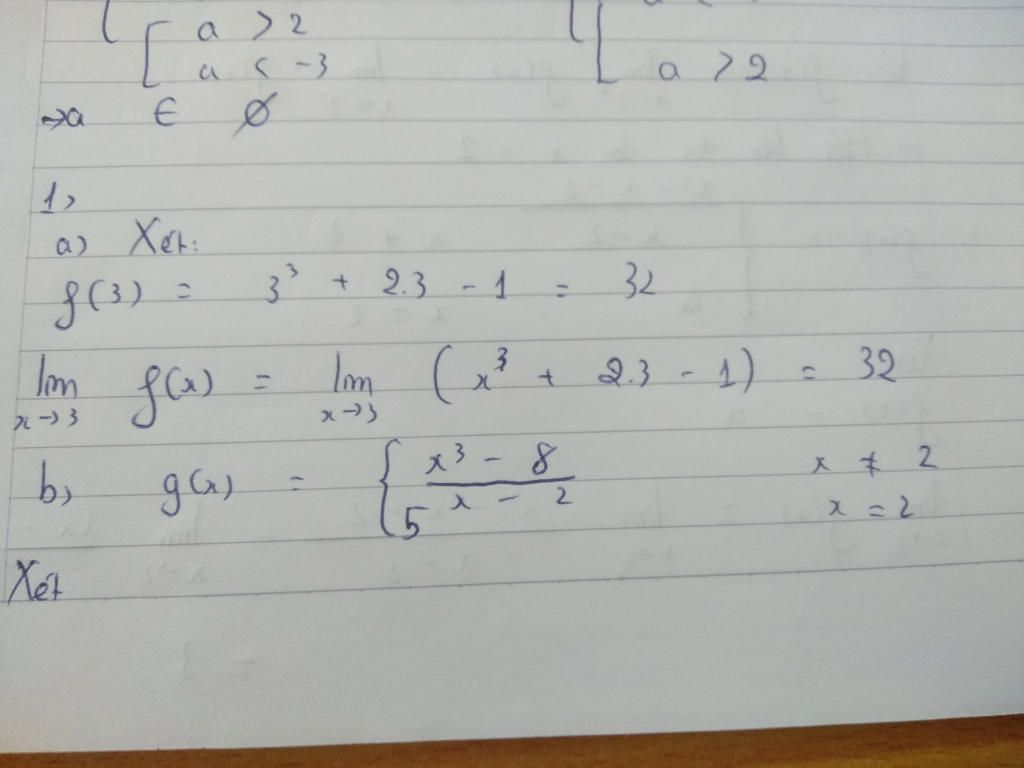 a > 2
a < -3 a > 2
→a ∈ ∅
1>
a) Xét:
f(3) = 3³ + 2.3 - 1 = 32
lim f(x) = lim (x³ + 2.3 - 1) = 32
x→3 x→3
b, g(x) = { x³ - 8 / x - 2 x ≠ 2
5 x = 2
Xét